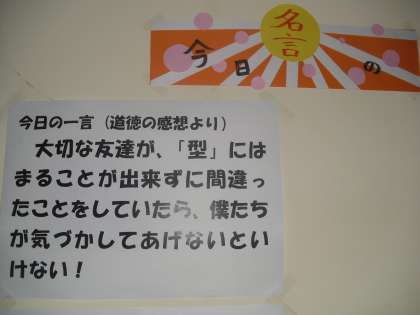 今日の
名言
今日の一言（道徳の感想より）
大切な友達が、「型」には
まることが出来ずに間違っ
たことをしていたら、僕たち
が気づかしてあげないとい
けない！